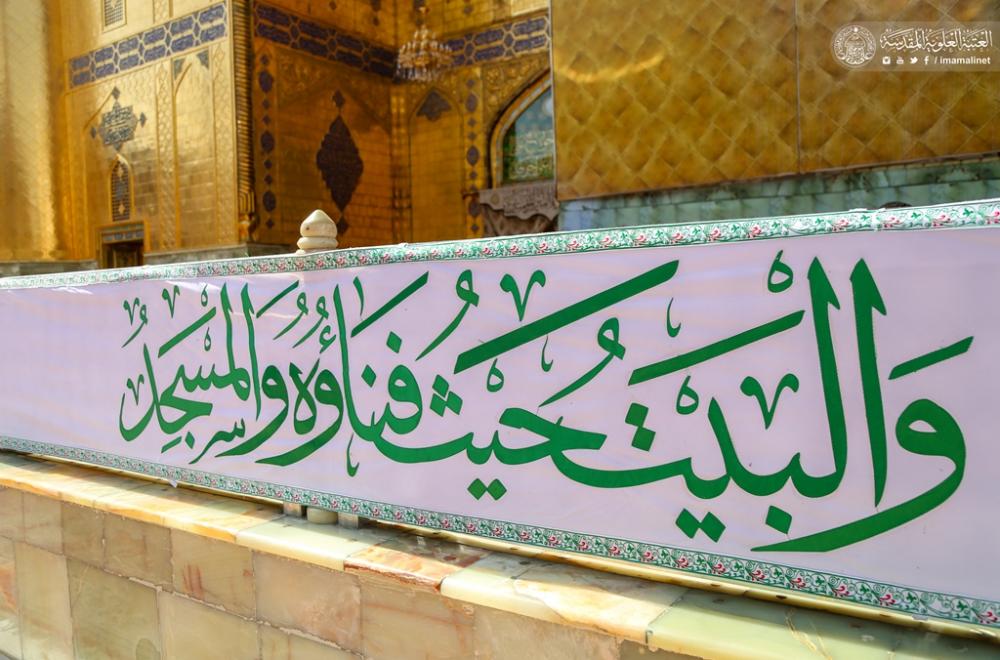 العتبة العلوية المقدسة
/ imamalinet
وَالْبَيْتُ حَيْثُ فِنَاؤُهُ وَالْمَسْجِدُ